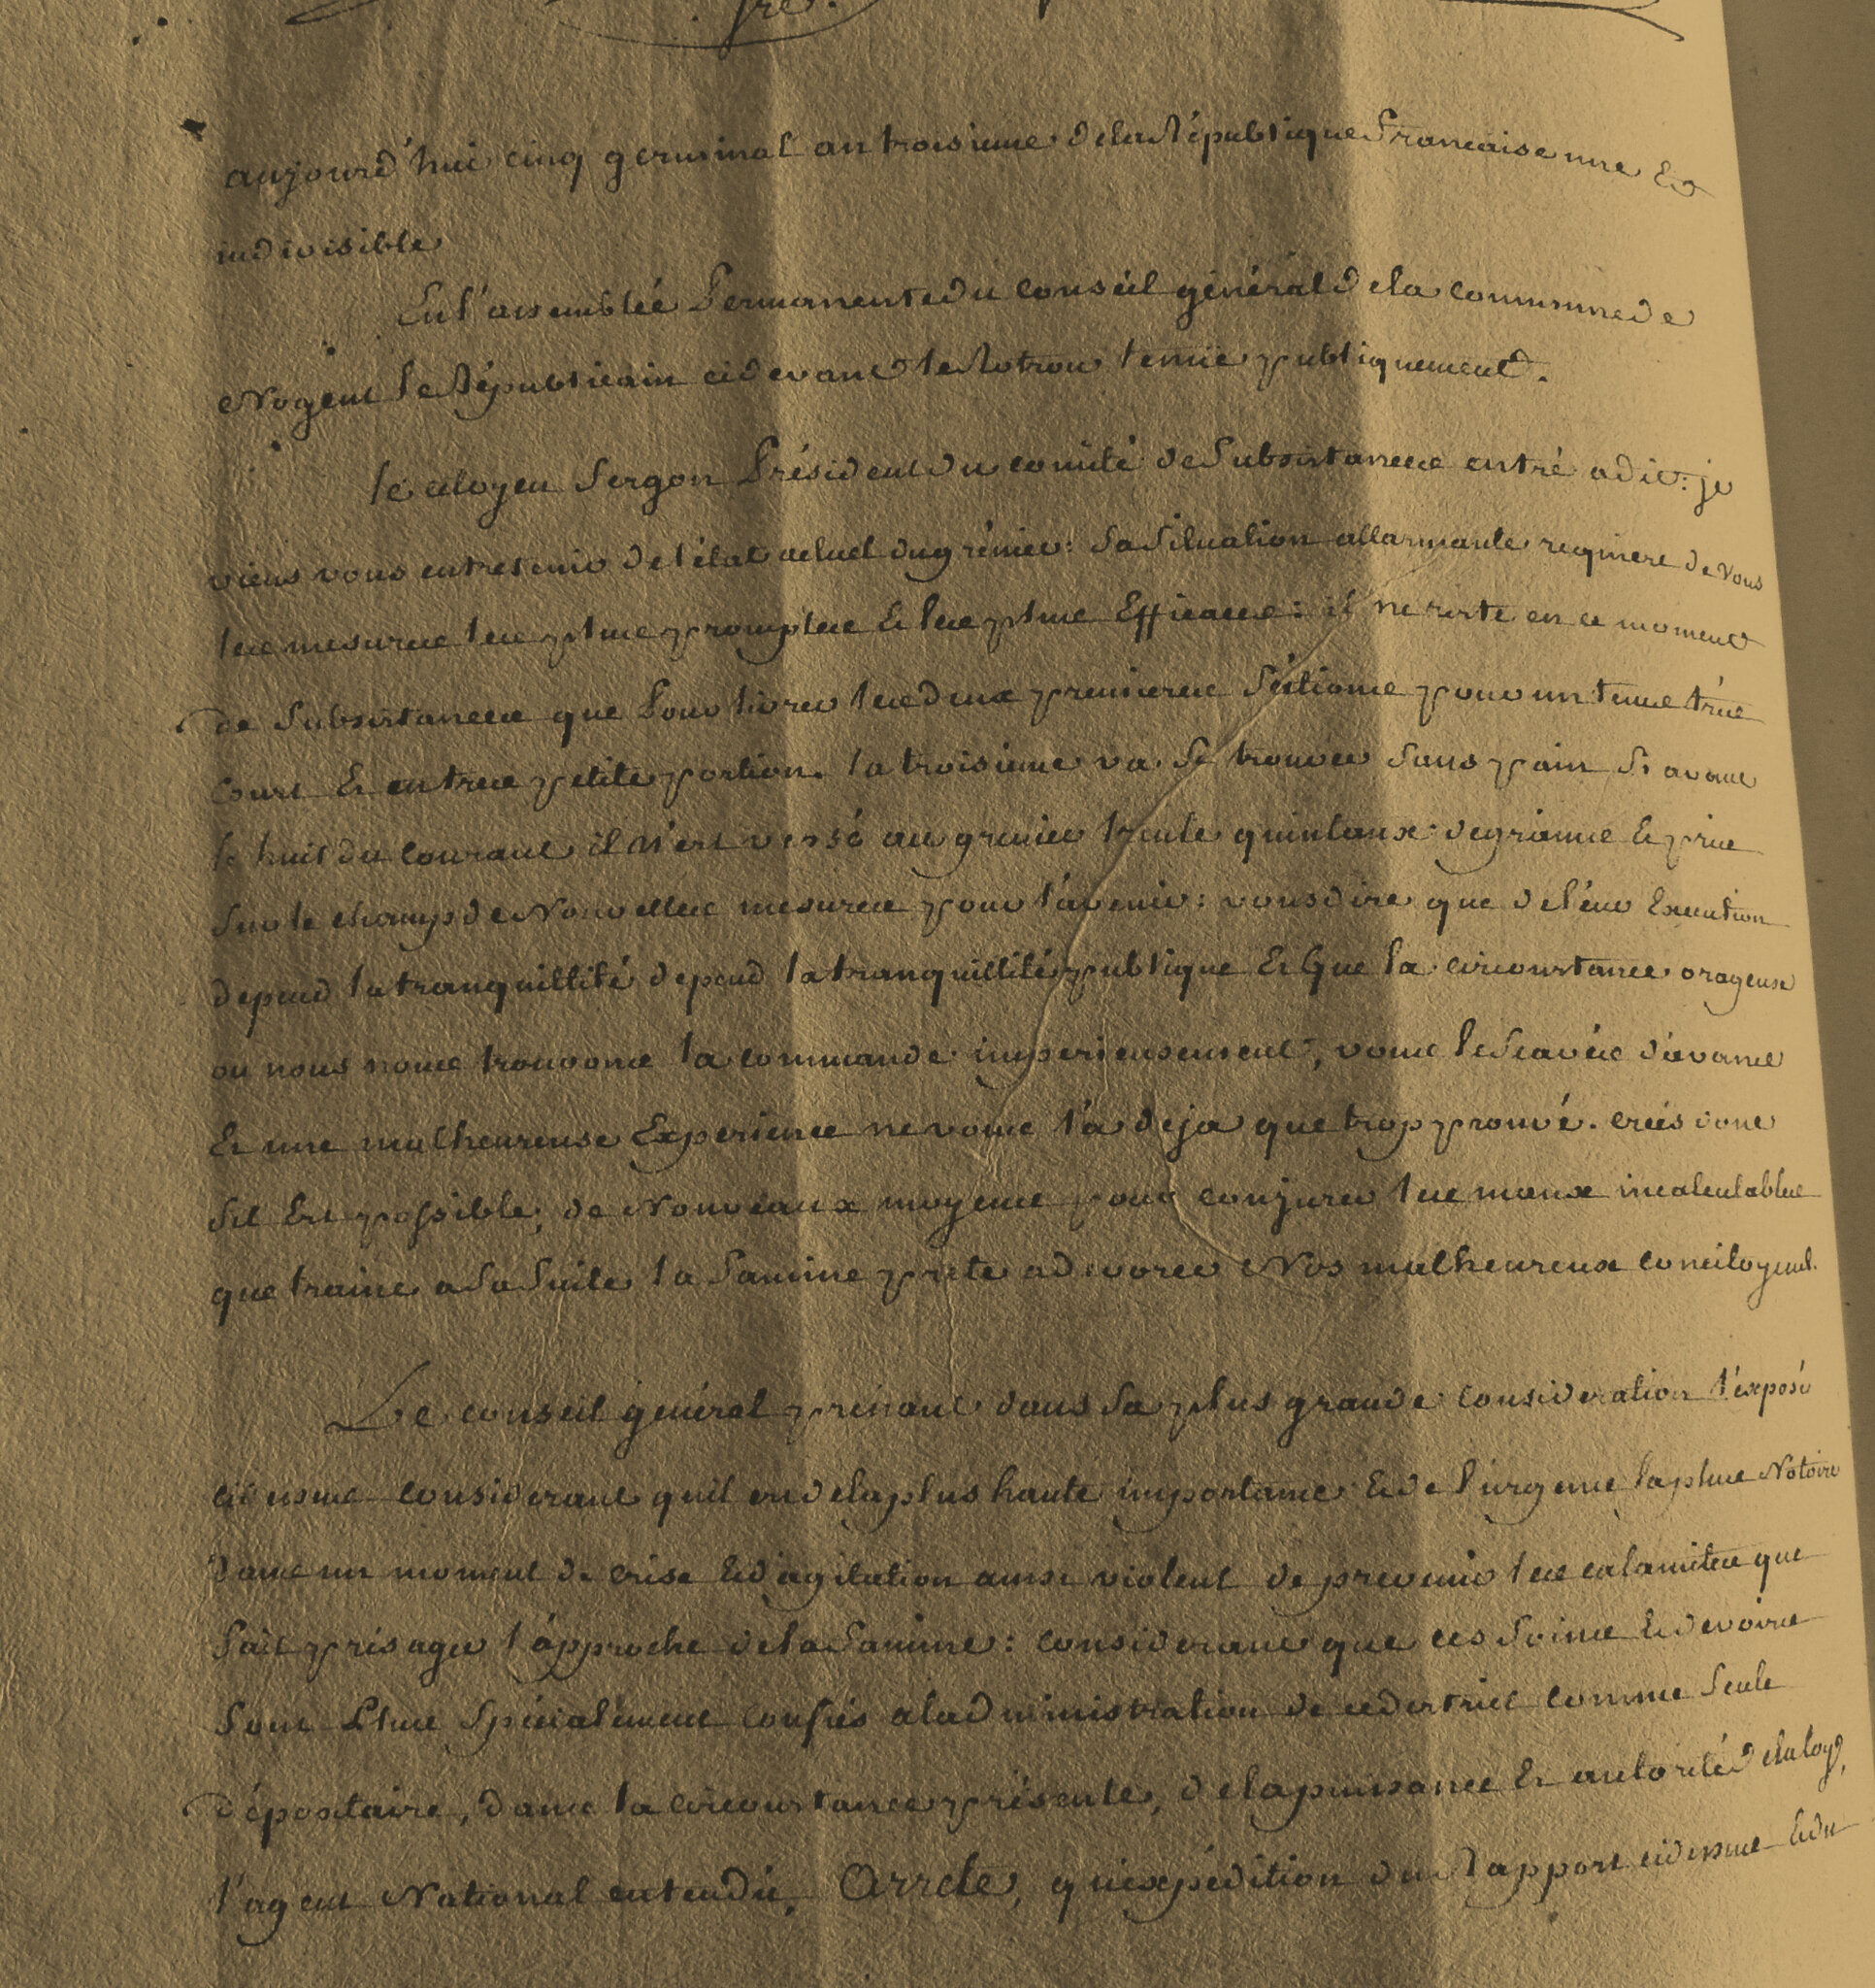 aujourd'hui cinq germinal an troisieme de la République Francaise une Et
indivisible
En l'assemblée Permanente du conseil général de la commune de
Nogent le Républicain cidevant le Rotrou tenue publiquement.
le citoyen Sergon Président du comité de Subsistances entré a dit: je
viens vous entretenir de l'état actuel du grénier: Sa Situation allarmante requiere de vous
les mesures les plus promptes Et les plus Efficaces: il ne reste en ce moment
de Subsistances que Pour livrer les deux premieres Séctions pour un tems très
Court Et en tres petite portion. la troisieme va Se trouver Sans pain Si avant
le huit du Courant il n'est versé au grenier trente quintaux de grains Et pris
Sur le champ de Nouvelles mesures pour l'avenir: vous dire que de l'eur Execution
depend la tranquillité depend la tranquillité publique Et Que la circonstance orageuse
ou nous nous trouvons la commande imperieusement, vous le Scavés d'avance
Et une malheureuse Experience ne vous l'a deja que trop prouvé. creés donc
Sil Est possible, de Nouveaux moyens pour conjurer les maux incalculables
que traine a Sa Suite la Famine prete a devorer Nos malheureux concitoyens.
Le conseil général prenant dans Sa plus grande consideration l'exposé
ci dessus considerant quil est de la plus haute importance Et de l'urgence la plus Notoire
dans un moment de crise Et d'agitation aussi violent de prevenir les calamites que
Fait présager l'approche de la Famine: considerant que ces Soins Et devoirs
Sont Plus Spécialement confiés a ladministration de ce district comme Seule
dépositaire, dans la circonstance présente, de la puissance Et autorité de la loy,
l'agent National entendu, Arrete, qu'expédition du Rapport cidessus Et du